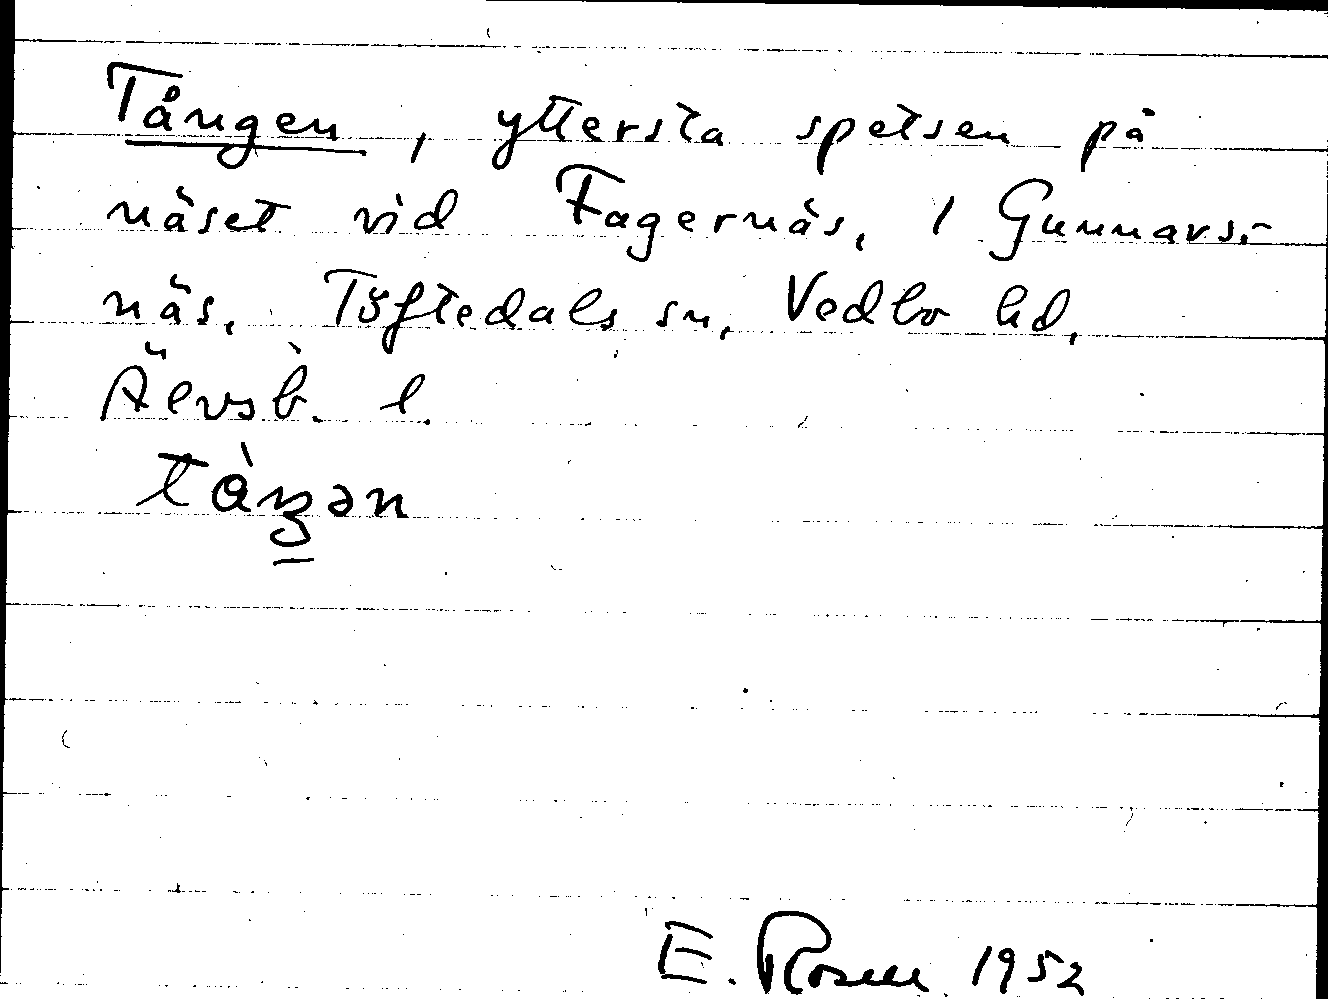 Tången, yttersta spetsen på
näset vid Fagernäs, 1 Gunnars-
näs, Töftedals sn, Vedbo hd,
Älvsb. l.
tàŋən
E. Rosen 1952